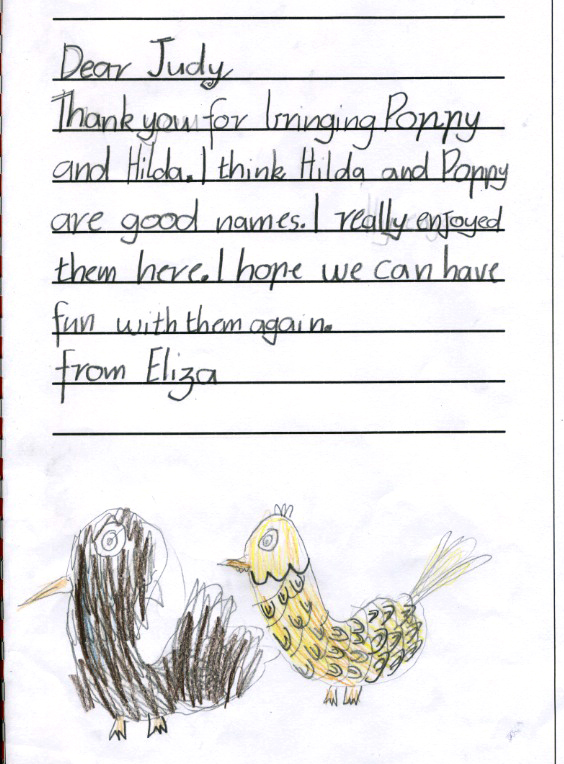 Dear Judy
Thank you for bringing Poppy
and Hilda. I think Hilda and Poppy
are good names. I really enjoyed
them here. I hope we can have
fun with them again.
from Eliza